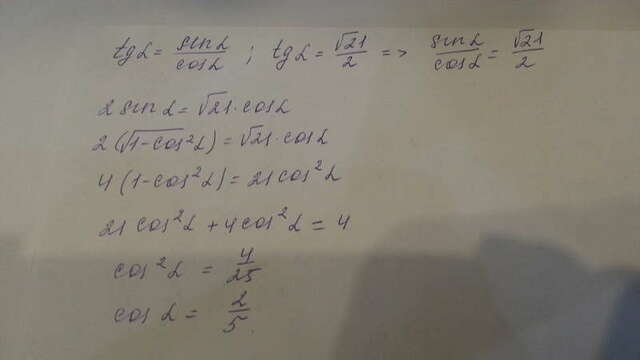 tgα = sinα/cosα ; tgα = √21/2 => sinα/cosα = √21/2
2 sinα = √21 · cosα
2 (√1-cos²α) = √21 · cosα
4 (1-cos²α) = 21 cos²α
21 cos²α + 4 cos²α = 4
cos²α = 4/25
cos α = 2/5